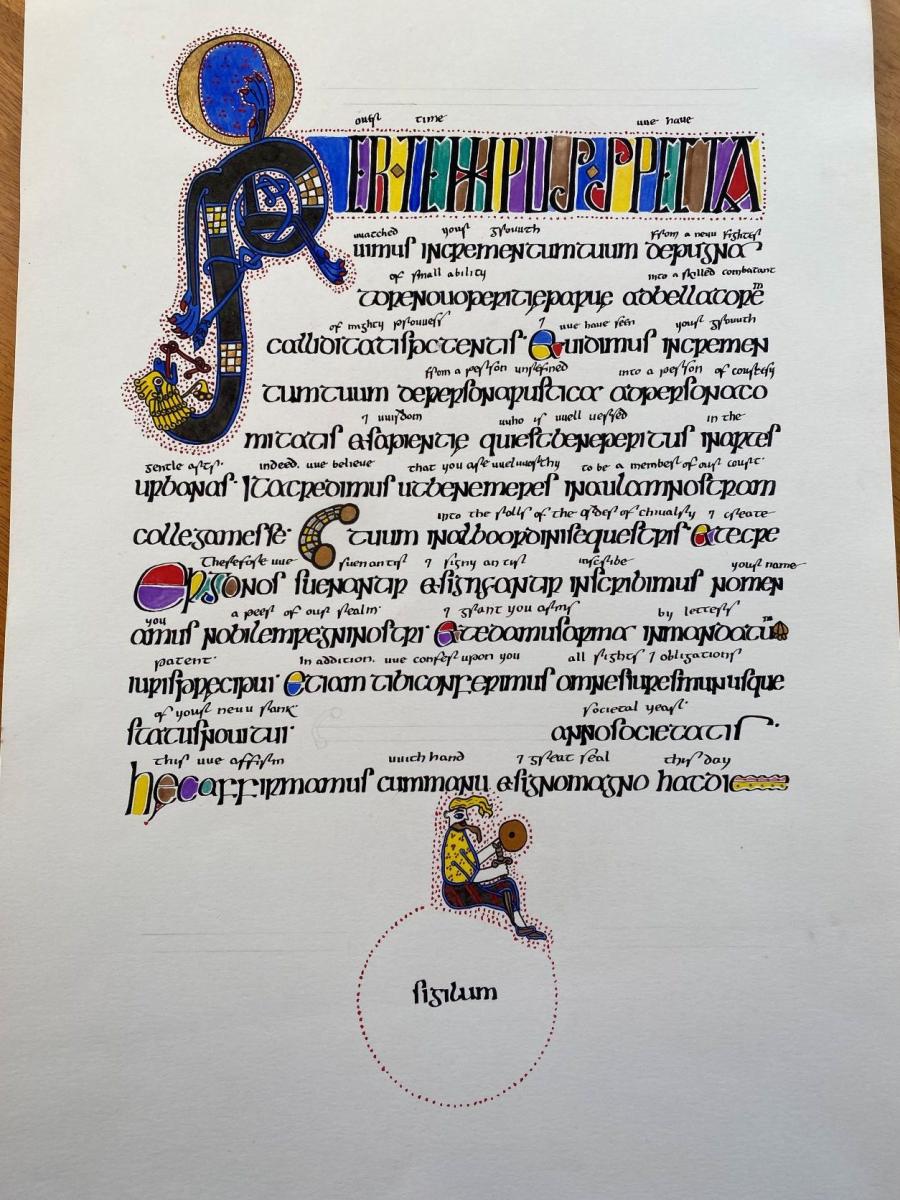 ouer time we haue
PER·TEMPUS·SPECTA
watched your growth from a new fighter
uimus incrementumtuum depugna
of small ability into a skilled combatant
torenouoperitięparuę adbellatorem
of mighty prowess ⁊ we haue seen your growth
calliditatispotentis· Etuidimus incremen
from a person unrefined into a person of courtesy
tumtuum depersonarustica adpersonaco
⁊ wisdom who is well uersed in the
mitatis &sapientię quiestbeneperitus inartes
gentle arts· indeed, we believe that you are welworthy to be a member of our court·
urbanas· Itacredimus utbenemeres inaulamnostram
into the rolls of the order of chiualry ⁊ create
collegamesse· tuum inalboordinisequestris· Etecre
Therefore we suenantir ⁊ signy antir inscribe your name
Ergonos suenantir &signyantir inscribimus nomen
you a peer of our realm· ⁊ grant you arms by letters
amus nobilemregninostri· Etedamusarma inmandatum
patent· In addition, we confer upon you all rights ⁊ obligations
iurisprecipui· Etiam tibiconferimus omnesiuresmunusque
of your new rank· societal year·
statusnouitui· annosocietatis·
this we affirm with hand ⁊ great seal this day
hecaffirmamus cummanu &signomagno hacdie
sigilum